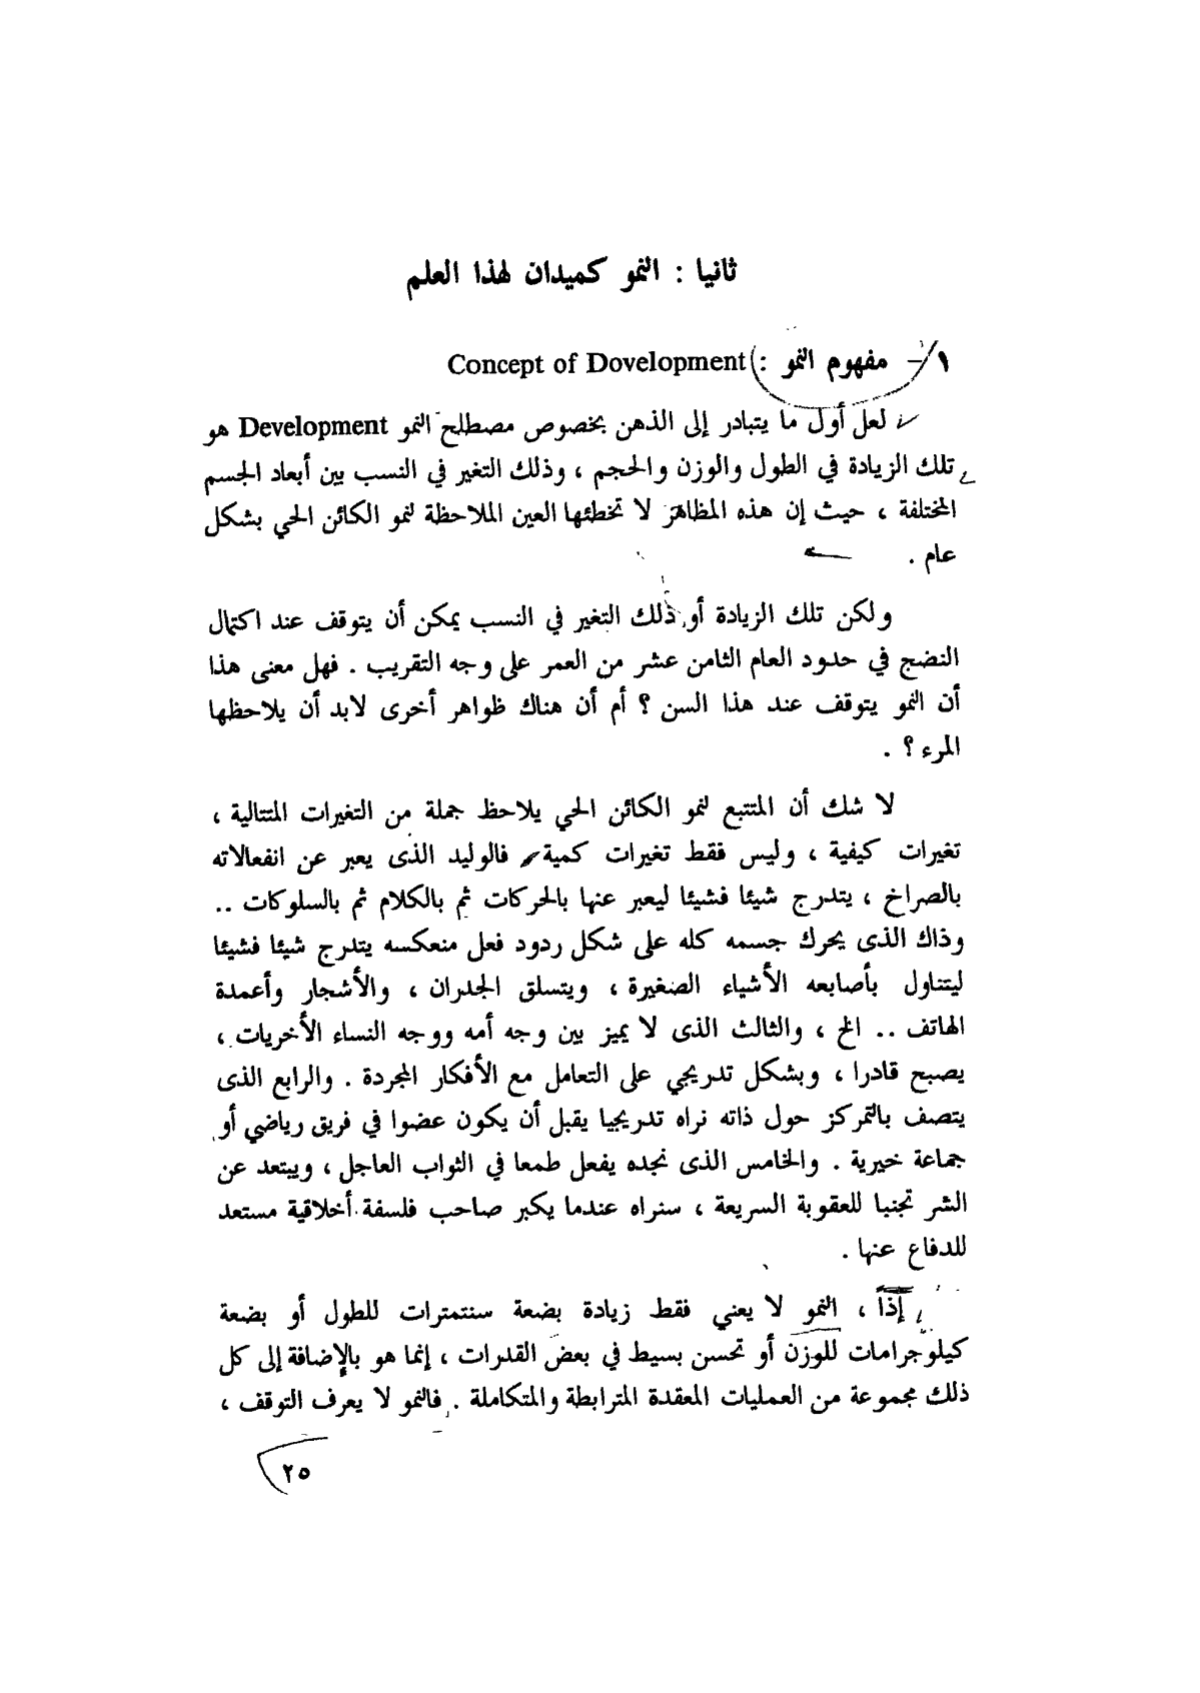 ثانيا : النمو كميدان لهذا العلم
١ – مفهوم النمو : Concept of Dovelopment
لعل أول ما يتبادر إلى الذهن بخصوص مصطلح النمو Development هو
تلك الزيادة في الطول والوزن والحجم ، وذلك التغير في النسب بين أبعاد الجسم
المختلفة ، حيث إن هذه المظاهر لا تخطئها العين الملاحظة لنمو الكائن الحي بشكل
عام .
ولكن تلك الزيادة أو ذلك التغير في النسب يمكن أن يتوقف عند اكتمال
النضج في حدود العام الثامن عشر من العمر على وجه التقريب . فهل معنى هذا
أن النمو يتوقف عند هذا السن ؟ أم أن هناك ظواهر أخرى لابد أن يلاحظها
المرء ؟ .
لا شك أن المتتبع لنمو الكائن الحي يلاحظ جملة من التغيرات المتتالية ،
تغيرات كيفية ، وليس فقط تغيرات كمية ، فالوليد الذى يعبر عن انفعالاته
بالصراخ ، يتدرج شيئا فشيئا ليعبر عنها بالحركات ثم بالكلام ثم بالسلوكات ..
وذاك الذى يحرك جسمه كله على شكل ردود فعل منعكسه يتدرج شيئا فشيئا
ليتناول بأصابعه الأشياء الصغيرة ، ويتسلق الجدران ، والأشجار وأعمدة
الهاتف .. الخ ، والثالث الذى لا يميز بين وجه أمه ووجه النساء الأخريات ،
يصبح قادرا ، وبشكل تدريجي على التعامل مع الأفكار المجردة . والرابع الذى
يتصف بالتمركز حول ذاته نراه تدريجيا يقبل أن يكون عضوا في فريق رياضي أو
جماعة خيرية . والخامس الذى نجده يفعل طمعا في الثواب العاجل ، ويبتعد عن
الشر تجنبا للعقوبة السريعة ، سنراه عندما يكبر صاحب فلسفة أخلاقية مستعد
للدفاع عنها .
إذاً ، النمو لا يعني فقط زيادة بضعة سنتمترات للطول أو بضعة
كيلوجرامات للوزن أو تحسن بسيط في بعض القدرات ، إنما هو بالإضافة إلى كل
ذلك مجموعة من العمليات المعقدة المترابطة والمتكاملة . فالنمو لا يعرف التوقف ،
٢٥